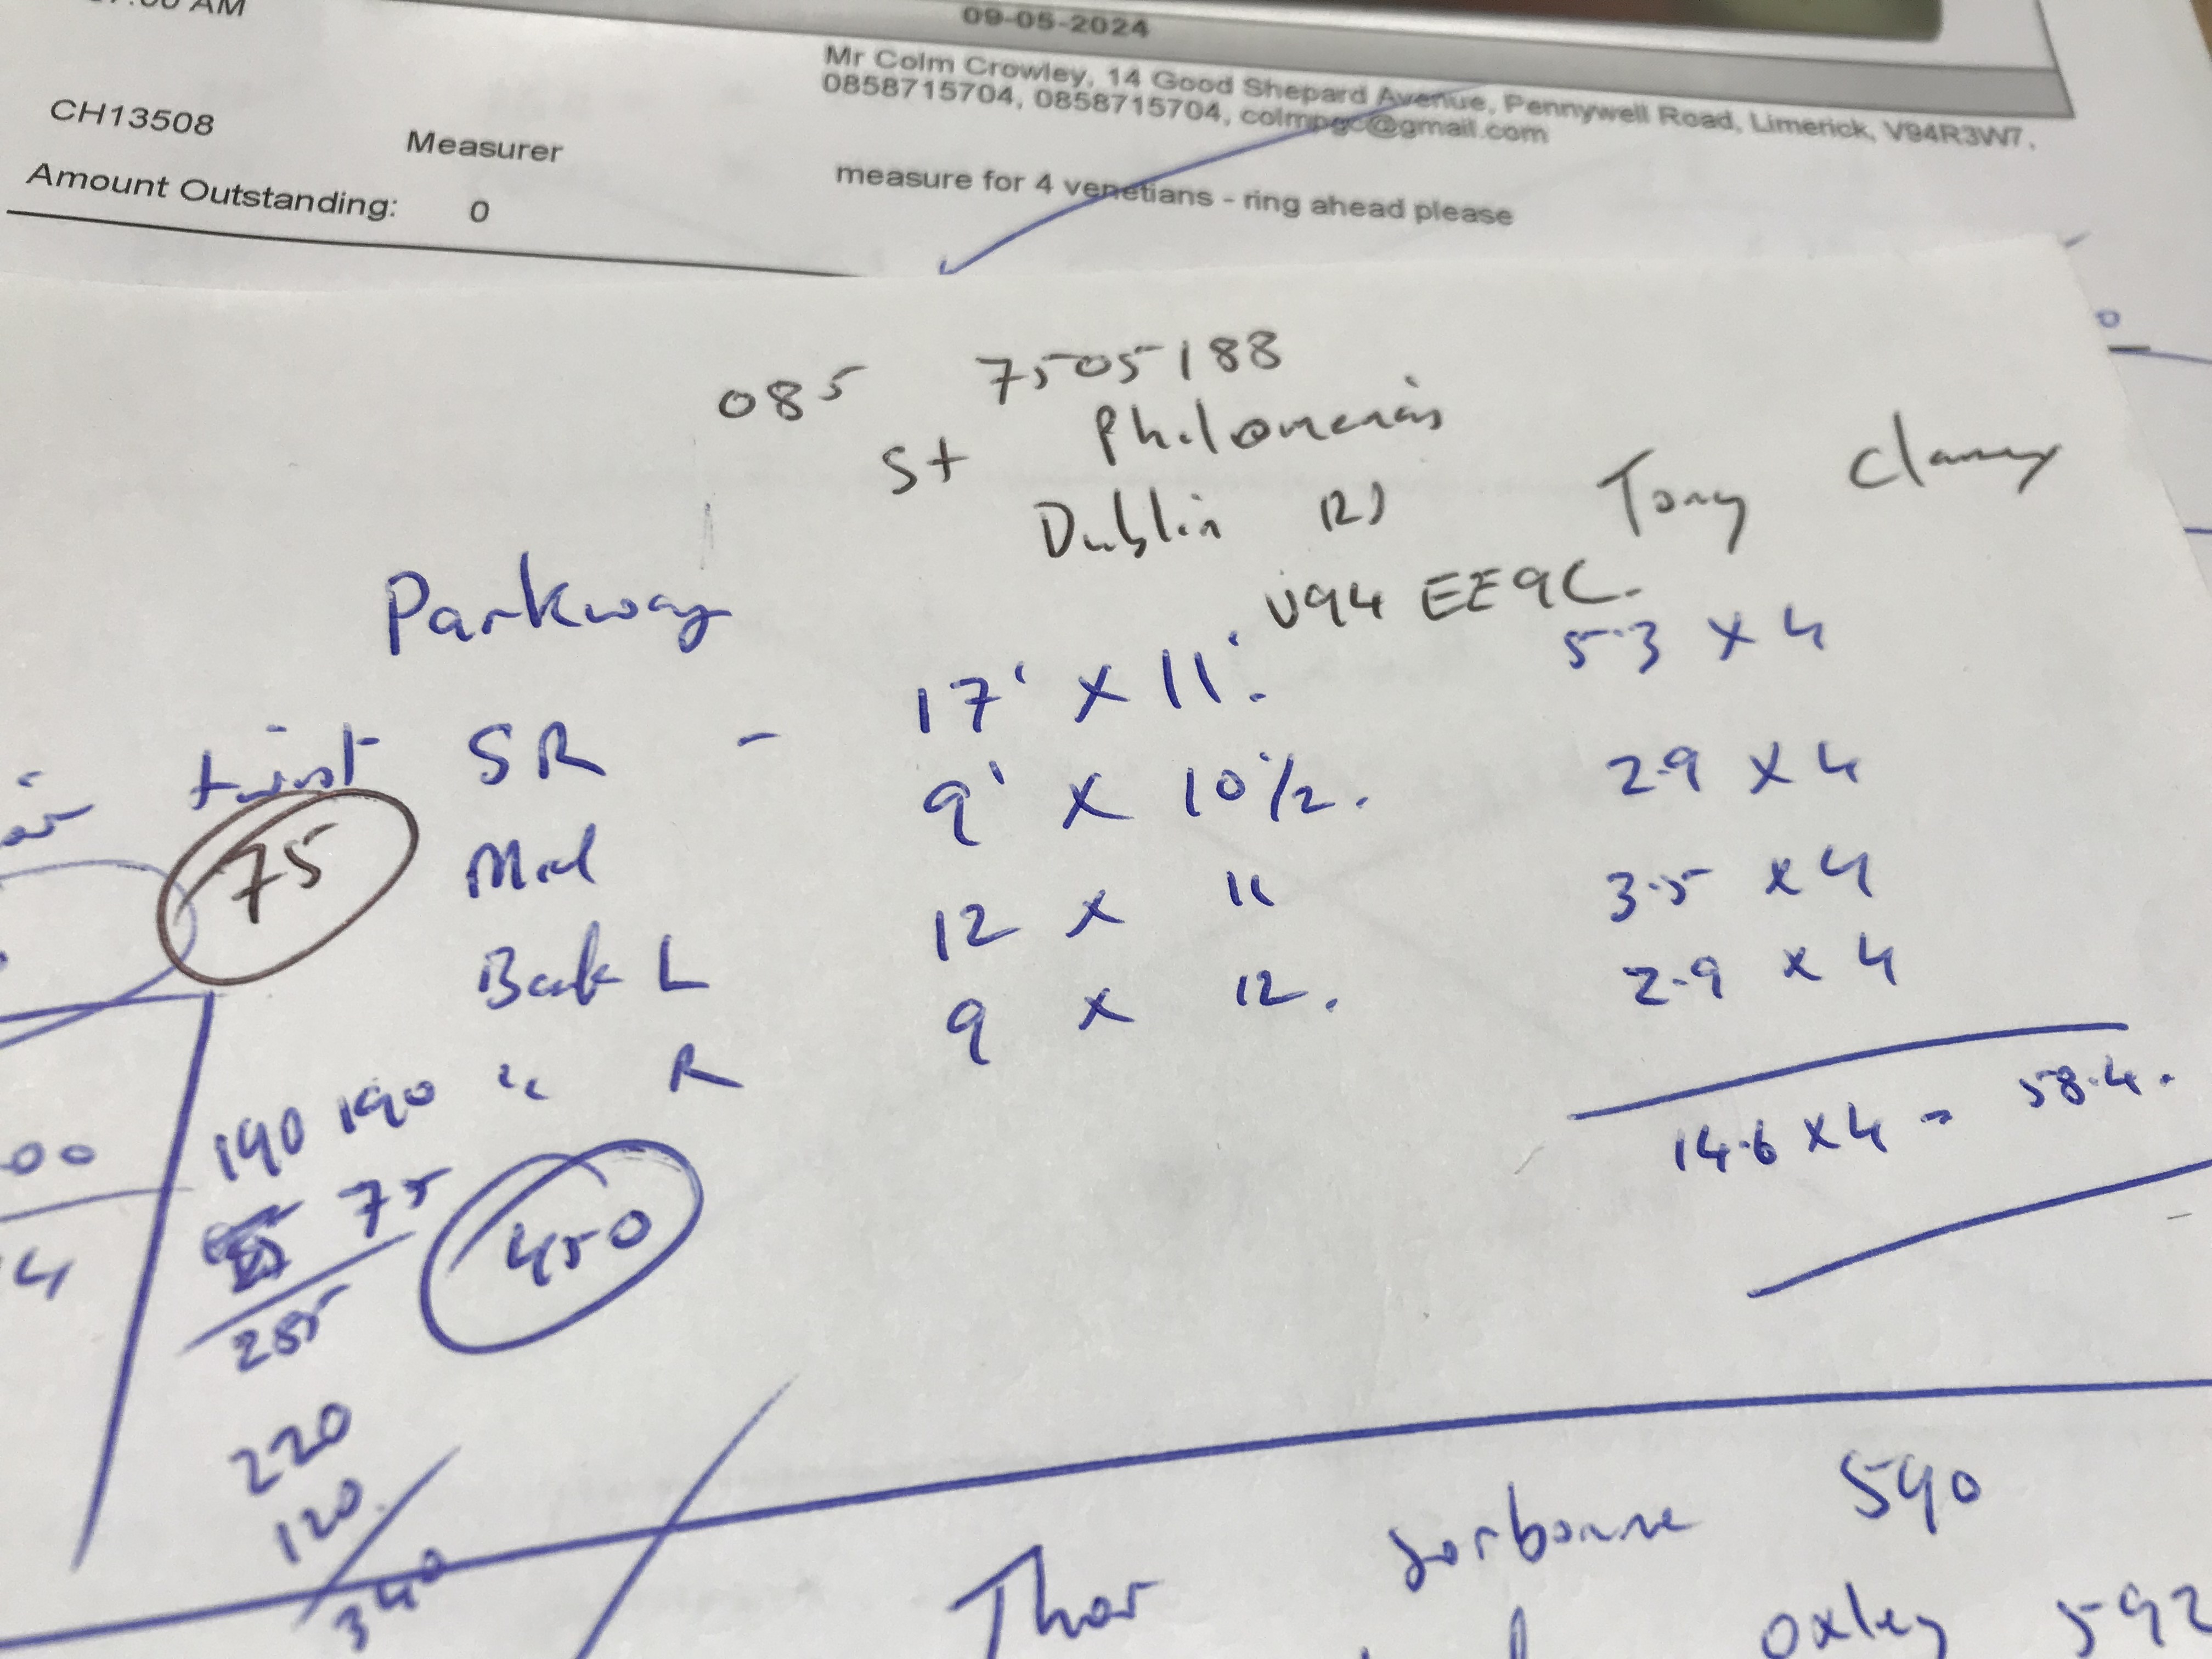 AM
09-05-2024
Mr Colm Crowley, 14 Good Shepard Avenue, Pennywell Road, Limerick, V94R3W7,
0858715704, 0858715704, colmpgc@gmail.com
CH13508 Measurer
Amount Outstanding: 0
measure for 4 venetians - ring ahead please
085 7505188
St Philomena's
Dublin Rd Tony Clancy
V94 EE9C.
Parkway
twist SR - 17' x 11'. 5.3 x 4
75 Mid 9' x 10 1/2. 2.9 x 4
Back L 12 x 11 3.5 x 4
" R 9 x 12. 2.9 x 4
14.6 x 4 = 58.4.
190 190
75
450
220
120
340
00
4
Thor Sorbonne 590
Oxley 592